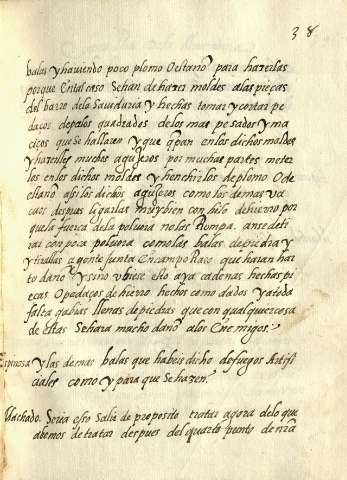 38
balas y haviendo poco plomo O estano para hazerlas
porque En tal caso Se han de hazer moldes a las pieças
del barro de la Saveduria y hechas tomar y cortar pe
daços de palos quadrados de los mas pesados y ma
ciços que Se hallazen y que q̃pan en los dichos moldes
y hazelles muchos agujeros por muchas partes mete
los en los dichos moldes y henchirlos de plomo O de
estano assi los dichos agujeros como los demas va
cios despues ligarlas muy bien con hilo de hierro por
que la fuerça de la polvora no los Rompa. anse de ti
rar con poca polvora como las balas de piedra y
tirallas a gente junta En campo Raso que haran har
to daño Y si no ubiere esto aya cadenas hechas pi
eças O pedaços de hierro hechos como dados y a toda
falta gabias llenas de piedras que con qualquier cosa
de estas Se hara mucho daño a los Enemigos.
Espinosa y las demas balas que habeis dicho de fuegos Artifi
ciales como y para que Se hazen.
Machado. Seria esso Salir de proposito tratar agora de lo que
abemos de tratar despues del quarto punto de nr̃a